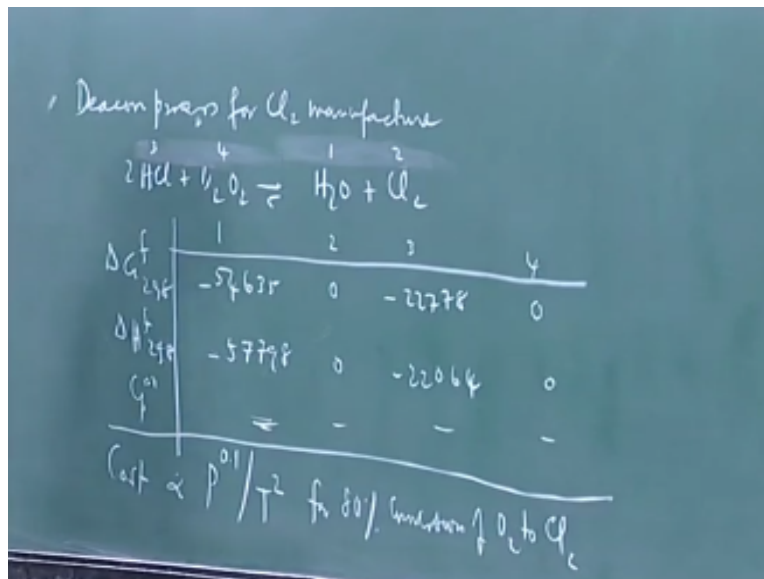 Deacon process for Cl₂ manufacture
3 4 1 2
2HCl + 1/2 O₂ ⇌ H₂O + Cl₂
1 2 3 4
ΔG^f_298 -54635 0 -22778 0
ΔH^f_298 -57798 0 -22064 0
– – – –
Cost ∝ P^0.1/T² for 80% conversion of O₂ to Cl₂